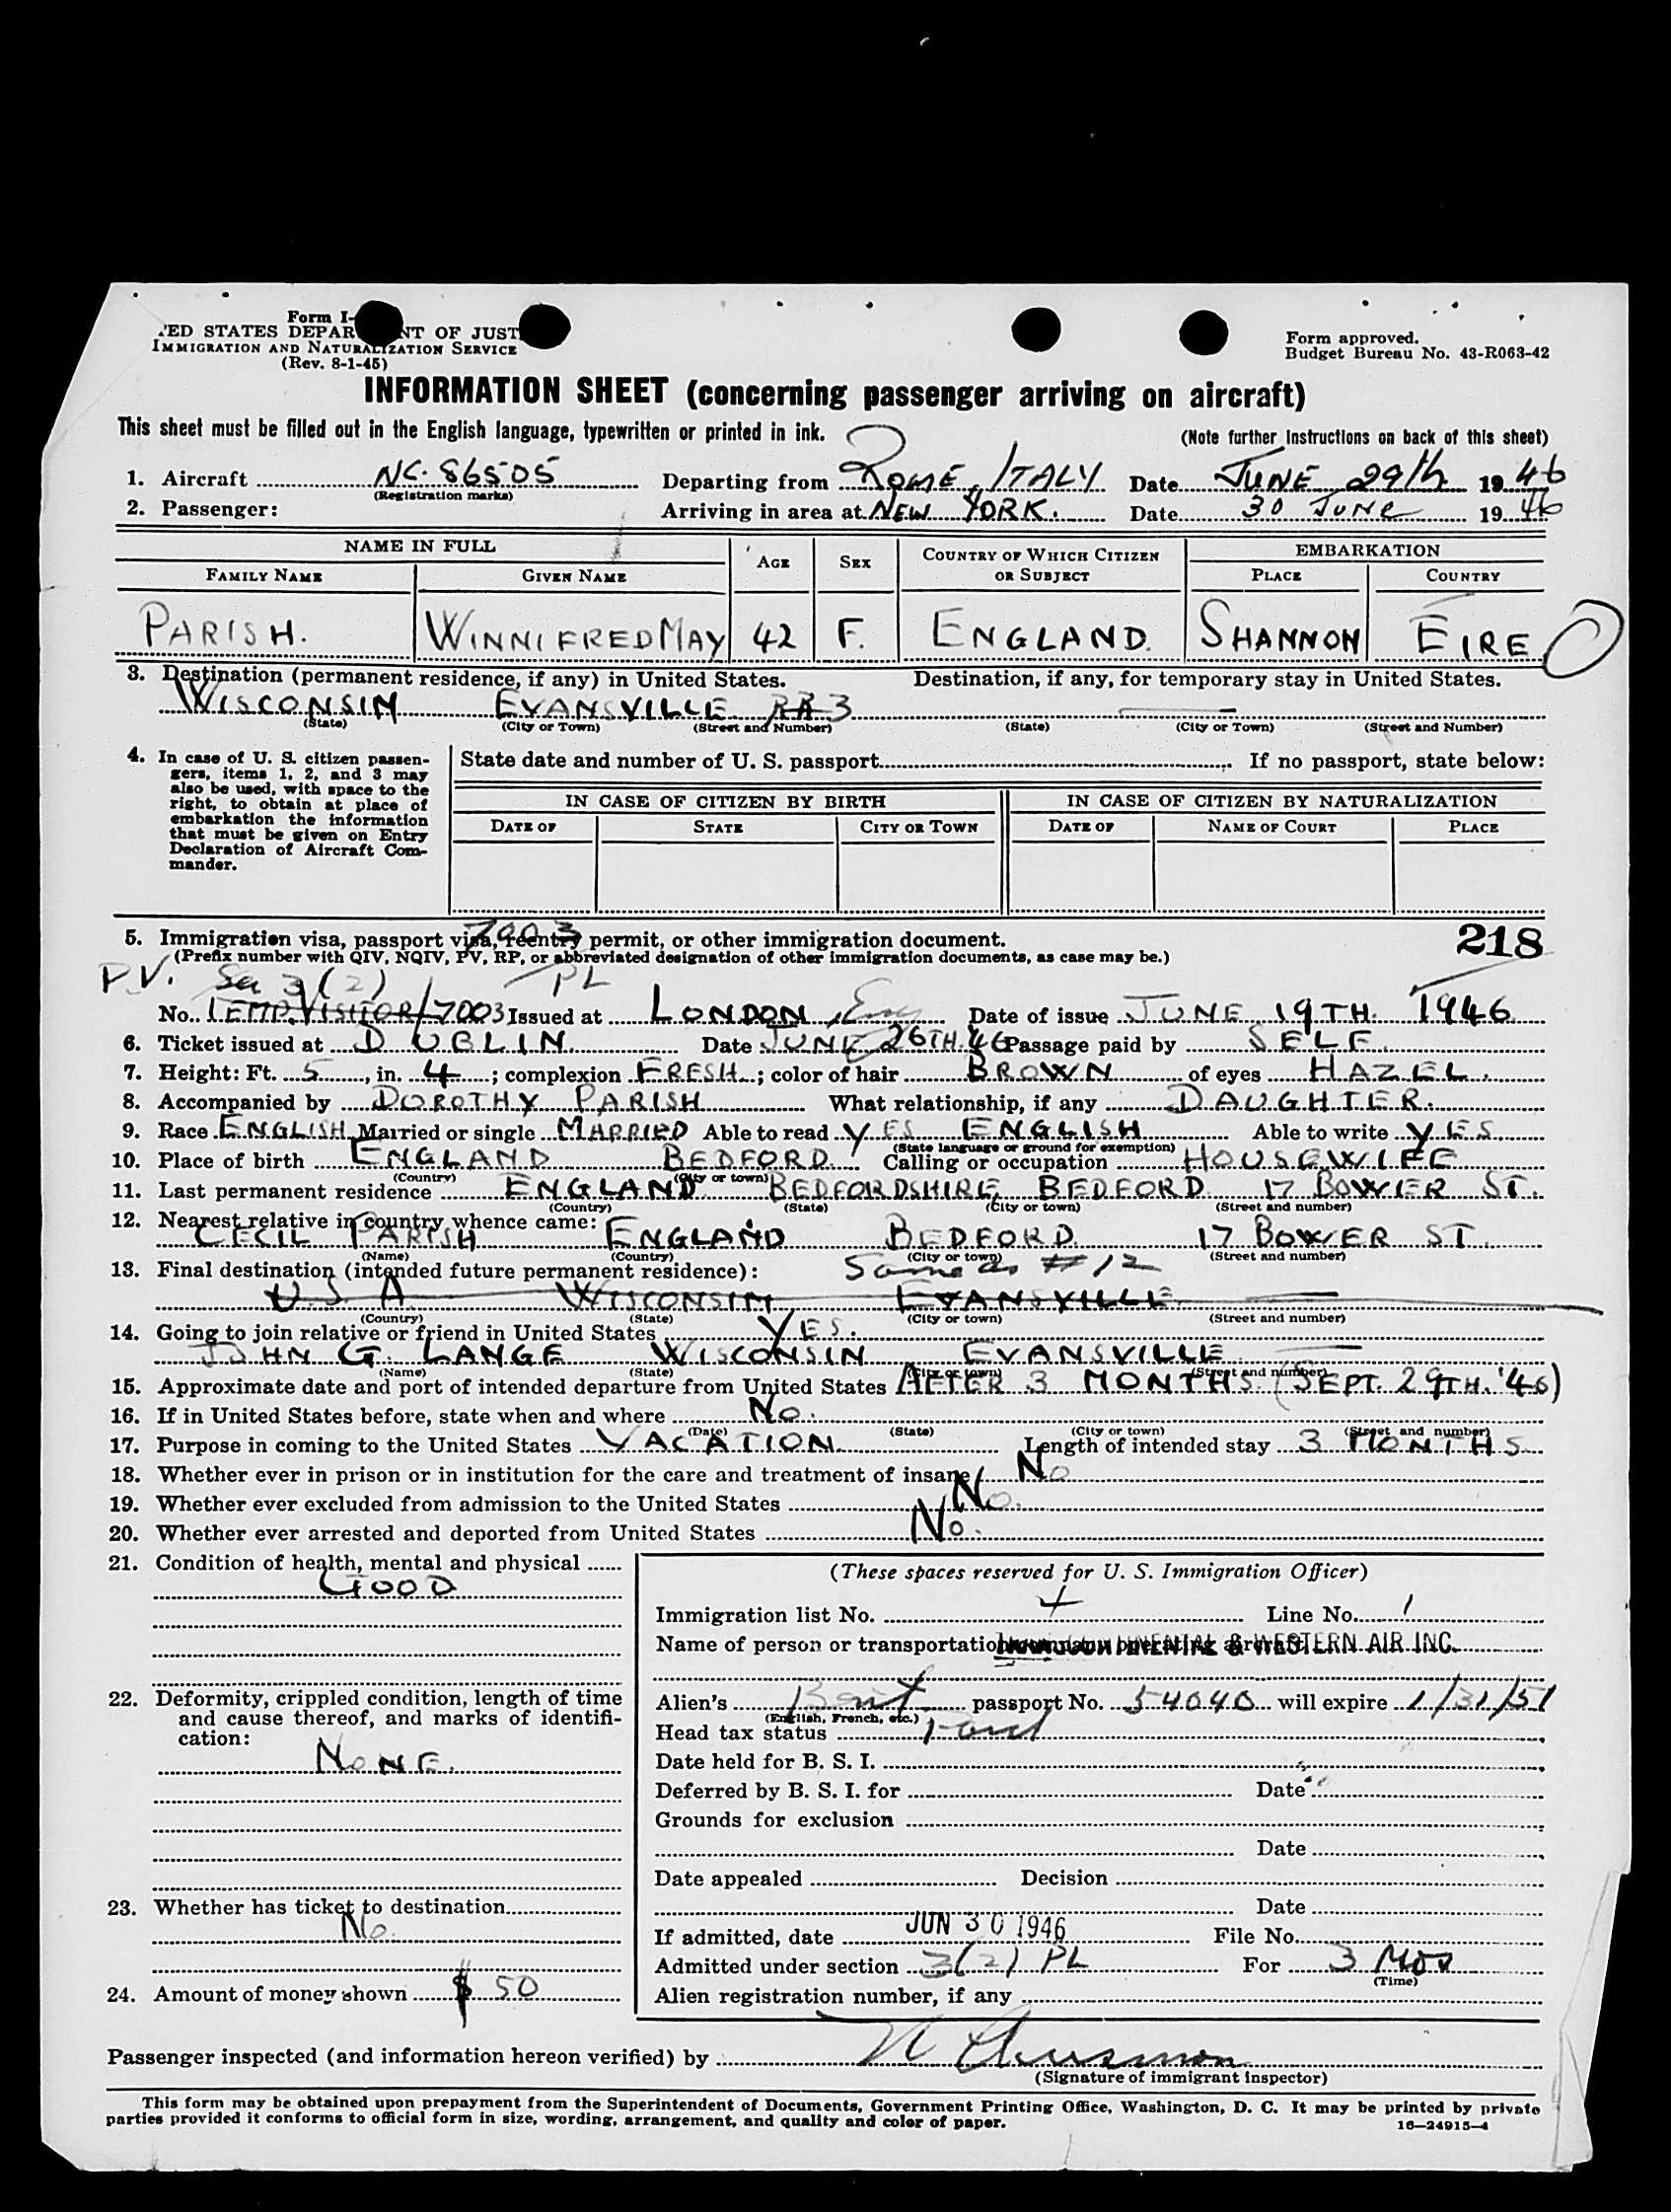 Form I-
ED STATES DEPAR NT OF JUST
IMMIGRATION AND NATURALIZATION SERVICE
(Rev. 8-1-45)
Form approved.
Budget Bureau No. 43-R063-42
INFORMATION SHEET (concerning passenger arriving on aircraft)
This sheet must be filled out in the English language, typewritten or printed in ink.
(Note further instructions on back of this sheet)
1. Aircraft NC. 86505 Departing from ROME, ITALY Date JUNE 29th 1946
(Registration marks)
2. Passenger: Arriving in area at NEW YORK. Date 30 JUNE 1946
NAME IN FULL AGE SEX COUNTRY OF WHICH CITIZEN OR SUBJECT EMBARKATION
FAMILY NAME GIVEN NAME PLACE COUNTRY
PARISH. WINNIFRED MAY 42 F. ENGLAND. SHANNON EIRE
3. Destination (permanent residence, if any) in United States. Destination, if any, for temporary stay in United States.
WISCONSIN EVANSVILLE RR 3
(State) (City or Town) (Street and Number) (State) (City or Town) (Street and Number)
4. In case of U. S. citizen passengers, items 1, 2, and 3 may also be used, with space to the right, to obtain at place of embarkation the information that must be given on Entry Declaration of Aircraft Commander.
State date and number of U. S. passport If no passport, state below:
IN CASE OF CITIZEN BY BIRTH IN CASE OF CITIZEN BY NATURALIZATION
DATE OF STATE CITY OR TOWN DATE OF NAME OF COURT PLACE
7003
5. Immigration visa, passport visa, reentry permit, or other immigration document. 218
(Prefix number with QIV, NQIV, PV, RP, or abbreviated designation of other immigration documents, as case may be.)
P.V. Sec 3(2) PL
No. TEMP. VISITOR/7003 Issued at LONDON, Date of issue JUNE 19TH. 1946
6. Ticket issued at DUBLIN Date JUNE 26TH. 46 Passage paid by SELF.
7. Height: Ft. 5, in. 4; complexion FRESH; color of hair BROWN of eyes HAZEL.
8. Accompanied by DOROTHY PARISH What relationship, if any DAUGHTER.
9. Race ENGLISH Married or single MARRIED Able to read YES ENGLISH Able to write YES
(State language or ground for exemption)
10. Place of birth ENGLAND BEDFORD. Calling or occupation HOUSEWIFE
(Country) (City or town)
11. Last permanent residence ENGLAND BEDFORDSHIRE, BEDFORD 17 BOWER ST.
(Country) (State) (City or town) (Street and number)
12. Nearest relative in country whence came:
CECIL PARISH ENGLAND BEDFORD 17 BOWER ST.
(Name) (Country) (City or town) (Street and number)
13. Final destination (intended future permanent residence): Same as #12
U.S.A. WISCONSIN EVANSVILLE
(Country) (State) (City or town) (Street and number)
14. Going to join relative or friend in United States YES.
JOHN G. LANGE WISCONSIN EVANSVILLE
(Name) (State) (City or town) (Street and number)
15. Approximate date and port of intended departure from United States AFTER 3 MONTHS. (SEPT. 29TH. '46)
16. If in United States before, state when and where No.
(Date) (State) (City or town) (Street and number)
17. Purpose in coming to the United States VACATION Length of intended stay 3 MONTHS
18. Whether ever in prison or in institution for the care and treatment of insane No
19. Whether ever excluded from admission to the United States No.
20. Whether ever arrested and deported from United States No.
21. Condition of health, mental and physical
GOOD
22. Deformity, crippled condition, length of time and cause thereof, and marks of identification:
NONE.
23. Whether has ticket to destination
No.
24. Amount of money shown $ 50
(These spaces reserved for U. S. Immigration Officer)
Immigration list No. 4 Line No. 1
Name of person or transportation company operating aircraft & WESTERN AIR INC.
Alien's Brit passport No. 54040 will expire 1/31/51
(English, French, etc.)
Head tax status
Date held for B. S. I.
Deferred by B. S. I. for Date
Grounds for exclusion
Date
Date appealed Decision
Date
If admitted, date JUN 30 1946 File No.
Admitted under section 3(2) PL For 3 Mos
(Time)
Alien registration number, if any
Passenger inspected (and information hereon verified) by
(Signature of immigrant inspector)
This form may be obtained upon prepayment from the Superintendent of Documents, Government Printing Office, Washington, D. C. It may be printed by private
parties provided it conforms to official form in size, wording, arrangement, and quality and color of paper. 16—24915-4